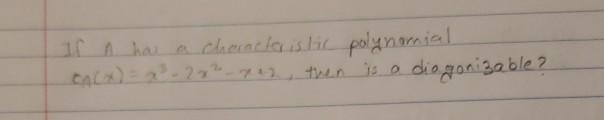 If A has a characteristic polynomial
cA(x) = x³ - 2x² - x + 2, then is a diagonizable?